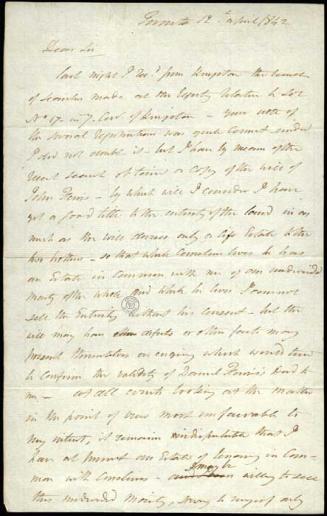 Toronto 12th April 1842
Dear Sir
Last night I Recd from Kingston the result
of searches made at the Deputy Register to Lot
No 17 in 7 Con of Kingston — your note of
the several Registrations was quite correct indeed
I did not doubt it — but I have by means of the
recent search obtained a copy of the will of
John Ferris — by which will I consider I have
got a good title to the entirety of the land in as
much as the will devises only a life Estate to the
two brothers — so that while Cornelius lives he has
an Estate in Common with me of one undivided
moiety of the whole and while he lives I cannot
sell the Entirety without his consent — but the
will may have other defects or other facts may
present themselves on enquiry which would tend
to confirm the validity of Daniel Ferris's Deed to
me — at all events looking at the matter
in the point of view most unfavorable to
my interest, it remains indisputable that I
have at present an Estate of tenancy in Com-
mon with Cornelius — simple
willing to sell
this undivided Moiety, to myself only